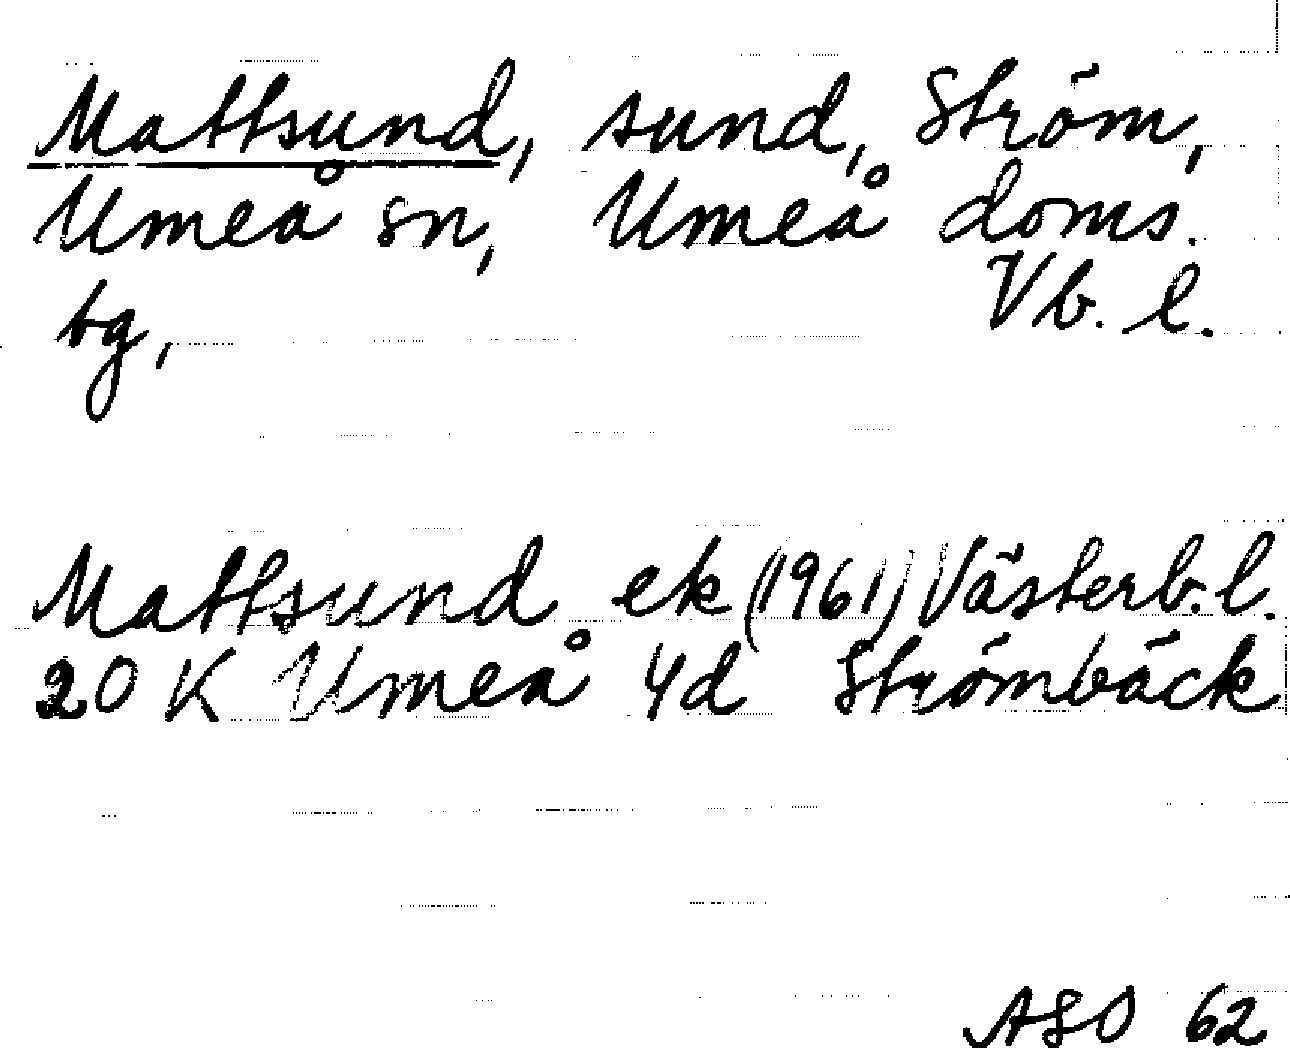 Mattsund, sund, Ström,
Umeå sn, Umeå doms.
tg, Vb. l.
Mattsund ek (1961) Västerb. l.
20 K Umeå 4d Strömbäck
ASO 62